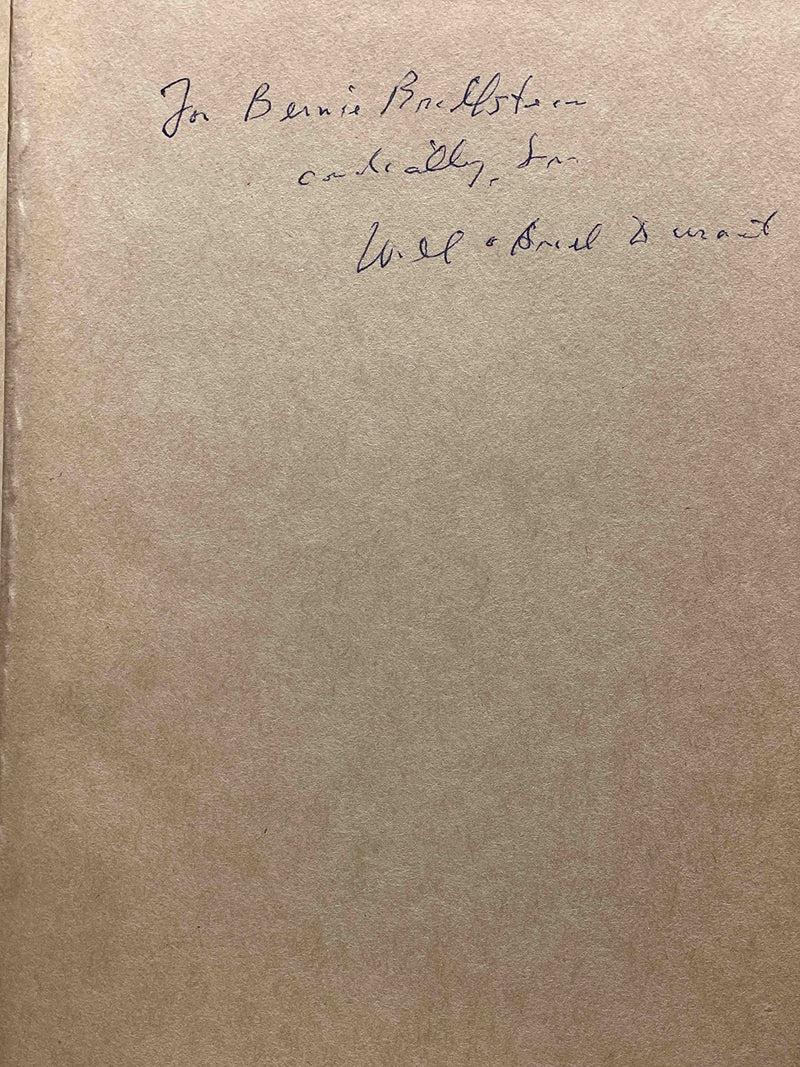 For Bernie Brillstein
cordially, from
Will & Ariel Durant